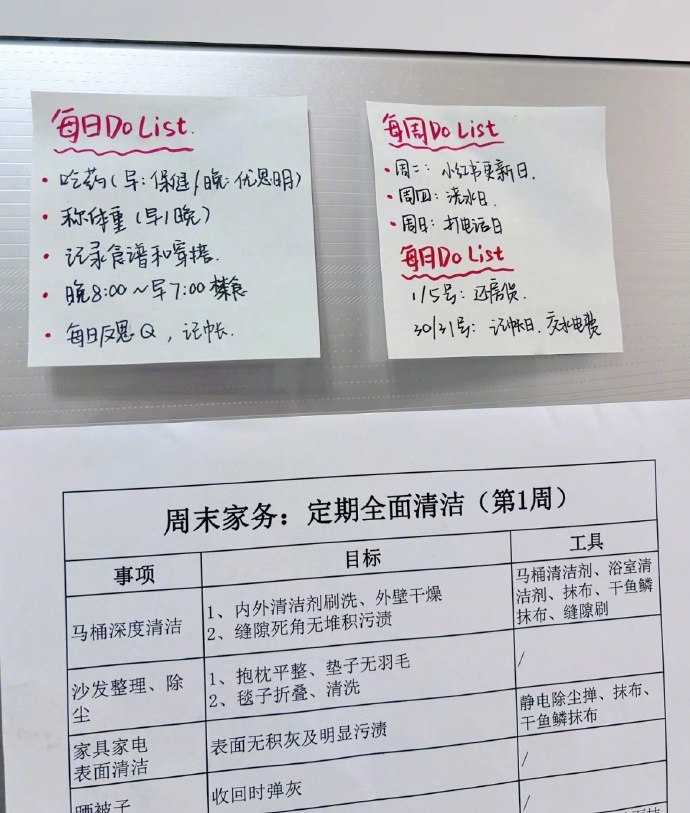 每日Do List.
• 吃药(早:保健/晚:优思明)
• 称体重(早/晚)
• 记录食谱和穿搭.
• 晚8:00~早7:00禁食
• 每日反思Q,记帐.
每周Do List
• 周二:小红书更新日.
• 周四:浇水日.
• 周日:打电话日
每日Do List
1/5号:还房贷.
30/31号:记帐日、交水电费
周末家务:定期全面清洁(第1周)
事项
目标
工具
马桶深度清洁
1、内外清洁剂刷洗、外壁干燥
2、缝隙死角无堆积污渍
马桶清洁剂、浴室清
洁剂、抹布、干鱼鳞
抹布、缝隙刷
沙发整理、除
尘
1、抱枕平整、垫子无羽毛
2、毯子折叠、清洗
/
家具家电
表面清洁
表面无积灰及明显污渍
静电除尘掸、抹布、
干鱼鳞抹布
晒被子
收回时弹灰
/
/